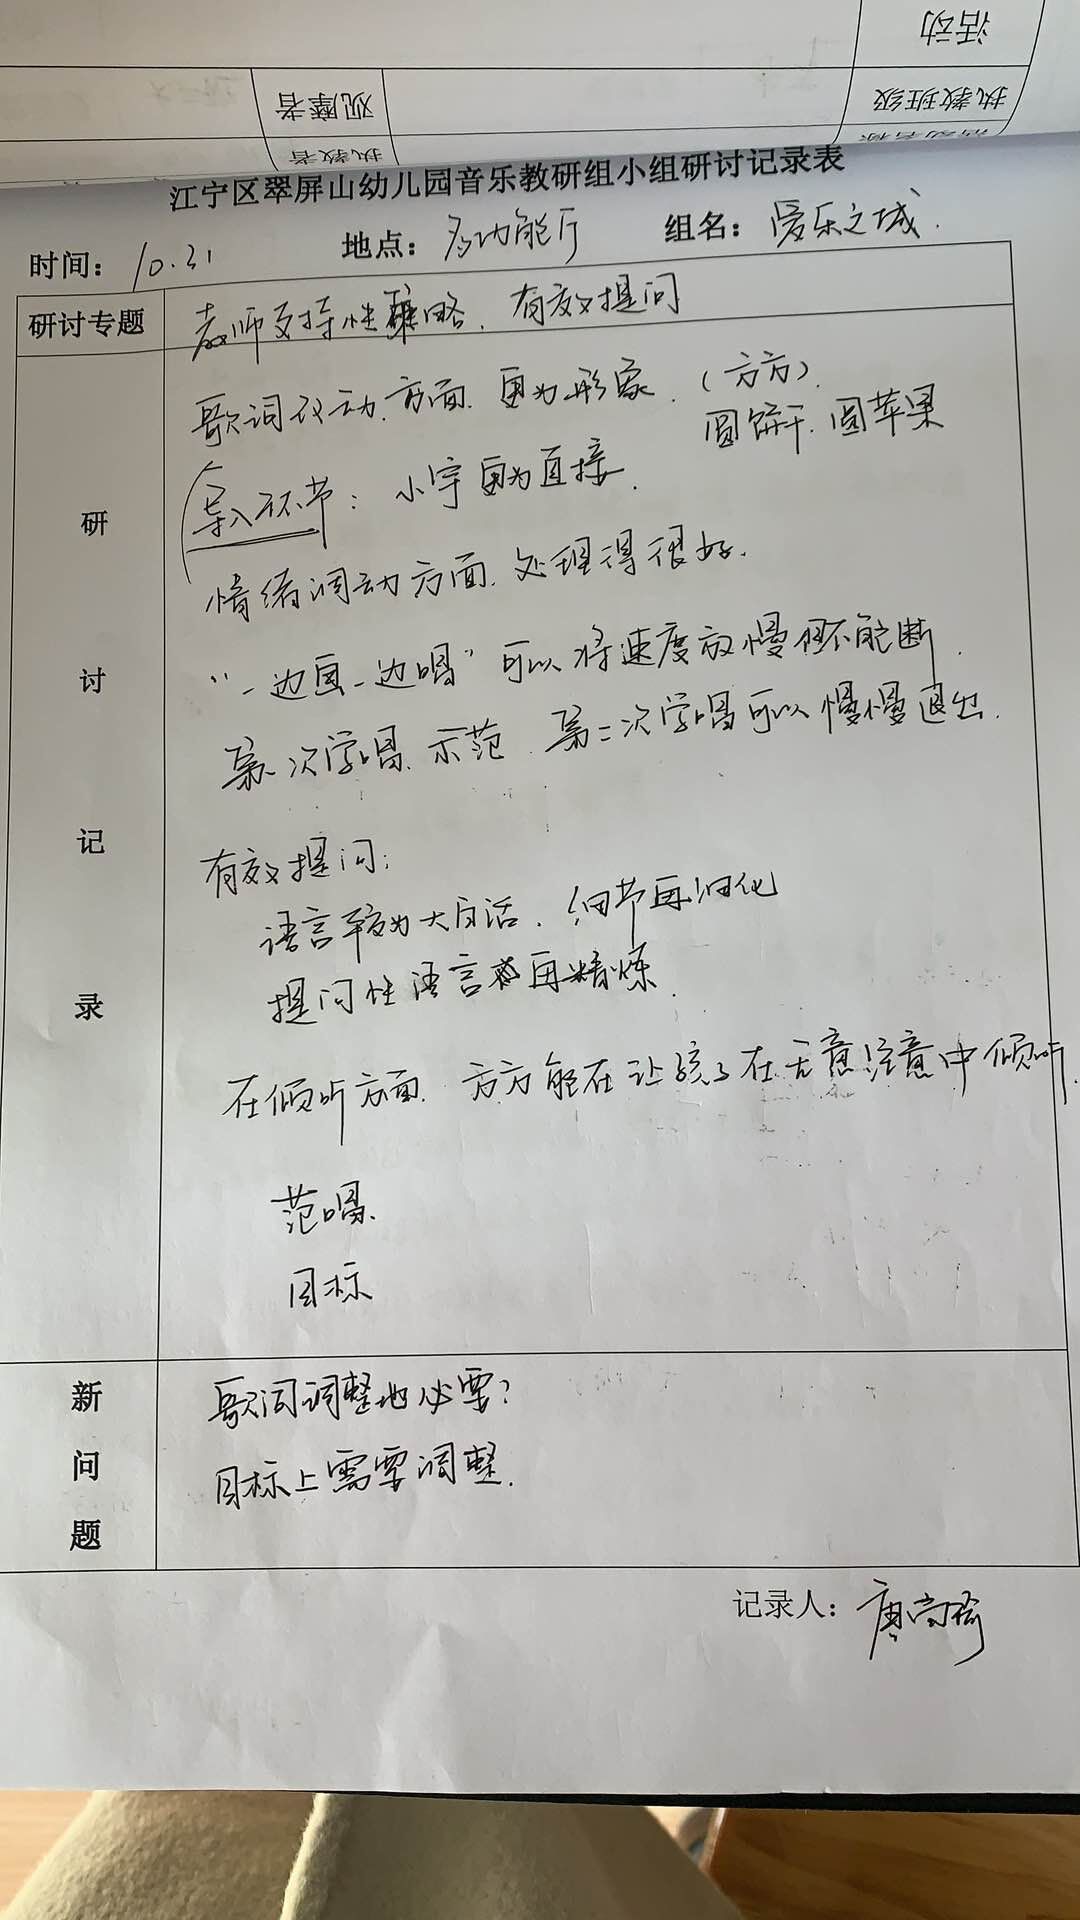 活动
执教班级
观摩者
活动名称
执教者
江宁区翠屏山幼儿园音乐教研组小组研讨记录表
时间：10.31 地点：多功能厅 组名：爱乐之城.
研讨专题 老师支持性策略、有效提问
研讨记录
歌词互动方面、更为形象.（方方）.
圆饼干.圆苹果
导入环节：小宇更为直接.
情绪调动方面.处理得很好.
“一边画一边唱”可以将速度放慢但不能断.
第一次学唱.示范.第二次学唱可以慢慢退出.
有效提问：
语言较为大白话.细节再细化
提问性语言再精炼.
在倾听方面.方方能在让孩子在无意注意中倾听.
范唱.
目标
新问题
歌词调整地必要？
目标上需要调整.
记录人：